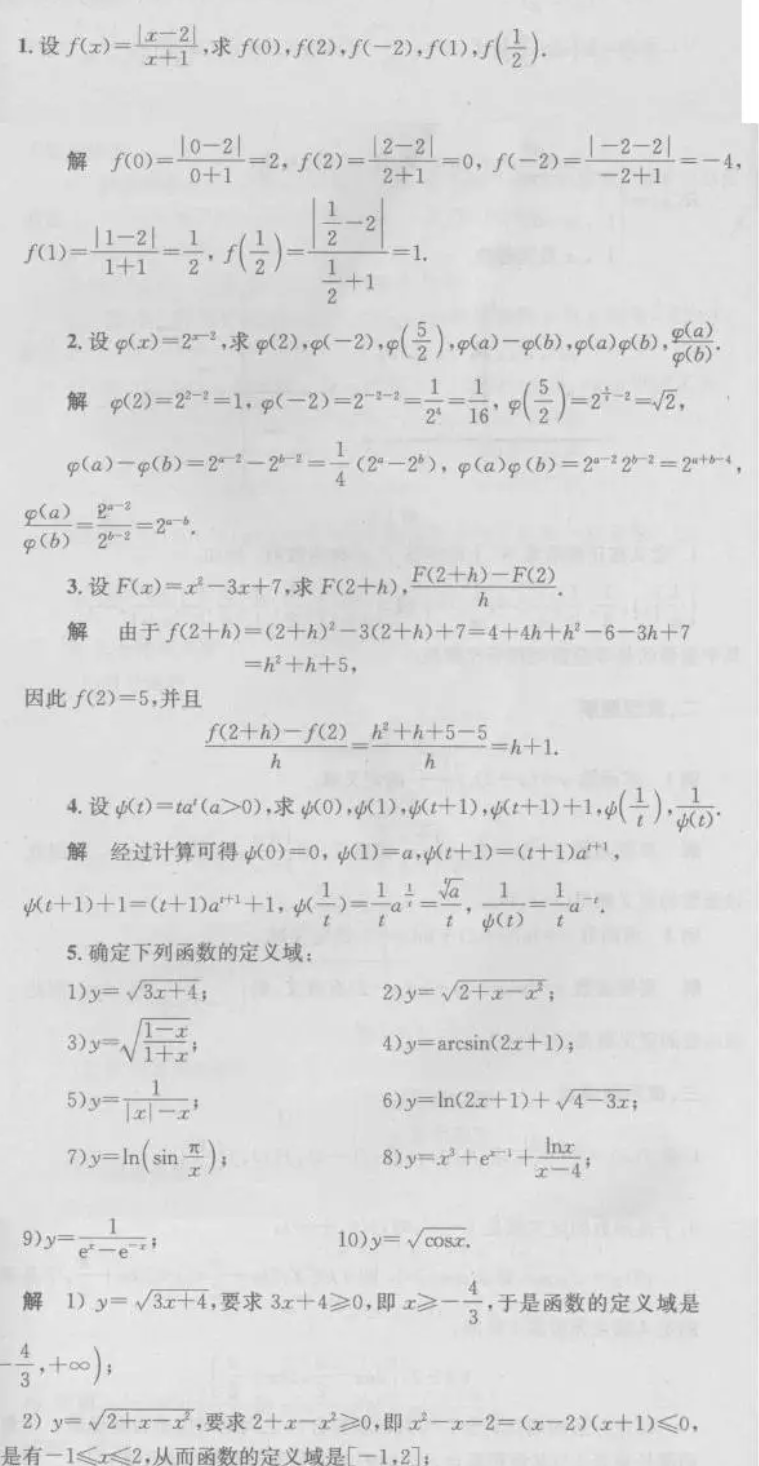 1. 设 f(x)=|x−2|/(x+1),求 f(0),f(2),f(−2),f(1),f(1/2).
解 f(0)=|0−2|/(0+1)=2, f(2)=|2−2|/(2+1)=0, f(−2)=|−2−2|/(−2+1)=−4,
f(1)=|1−2|/(1+1)=1/2, f(1/2)=|1/2−2|/(1/2+1)=1.
2. 设 φ(x)=2^(x−2),求 φ(2),φ(−2),φ(5/2),φ(a)−φ(b),φ(a)φ(b),φ(a)/φ(b).
解 φ(2)=2^(2−2)=1, φ(−2)=2^(−2−2)=1/2⁴=1/16, φ(5/2)=2^(−2)=√2,
φ(a)−φ(b)=2^(a−2)−2^(b−2)=1/4(2^a−2^b), φ(a)φ(b)=2^(a−2)2^(b−2)=2^(a+b−4),
φ(a)/φ(b)=2^(a−2)/2^(b−2)=2^(a−b).
3. 设 F(x)=x²−3x+7,求 F(2+h),(F(2+h)−F(2))/h.
解 由于 f(2+h)=(2+h)²−3(2+h)+7=4+4h+h²−6−3h+7
=h²+h+5,
因此 f(2)=5,并且
(f(2+h)−f(2))/h=(h²+h+5−5)/h=h+1.
4. 设 ψ(t)=ta^t(a>0),求 ψ(0),ψ(1),ψ(t+1),ψ(t+1)+1,ψ(1/t),1/ψ(t).
解 经过计算可得 ψ(0)=0, ψ(1)=a,ψ(t+1)=(t+1)a^(t+1),
ψ(t+1)+1=(t+1)a^(t+1)+1, ψ(1/t)=1/t a^(1/t)=ᵗ√a/t, 1/ψ(t)=1/t a^(−t).
5. 确定下列函数的定义域:
1)y=√(3x+4); 2)y=√(2+x−x²);
3)y=√((1−x)/(1+x)); 4)y=arcsin(2x+1);
5)y=1/(|x|−x); 6)y=ln(2x+1)+√(4−3x);
7)y=ln(sin π/x); 8)y=x³+e^(x−1)+lnx/(x−4);
9)y=1/(e^x−e^(−x)); 10)y=√(cosx).
解 1) y=√(3x+4),要求 3x+4≥0,即 x≥−4/3,于是函数的定义域是
−4/3,+∞);
2) y=√(2+x−x²),要求 2+x−x²≥0,即 x²−x−2=(x−2)(x+1)≤0,
是有−1≤x≤2,从而函数的定义域是[−1,2];